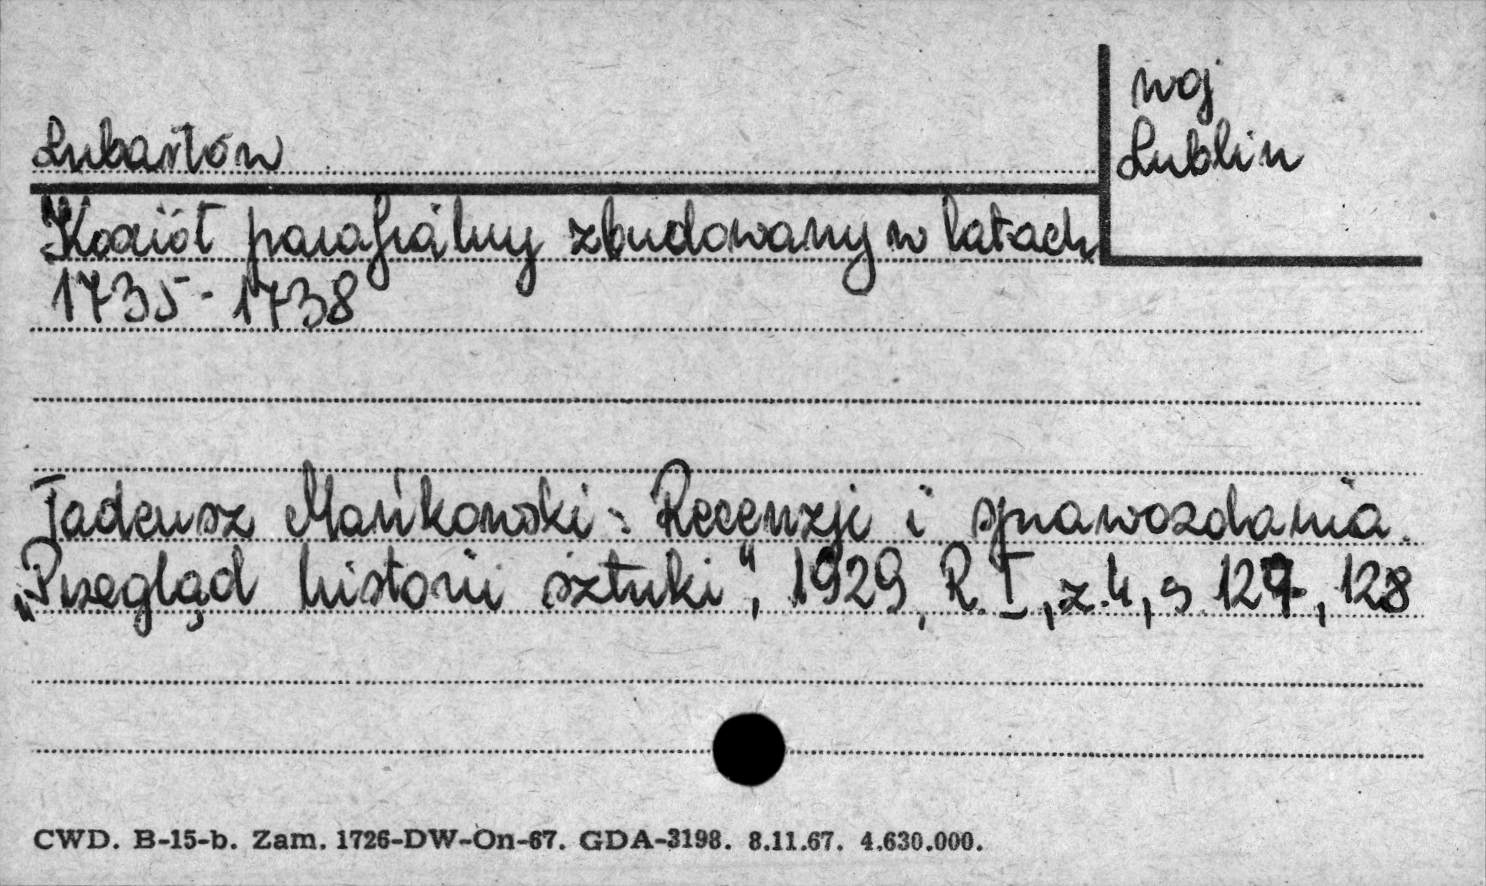 woj
Lublin
Lubartów
Kościół parafialny zbudowany w latach
1735-1738
Tadeusz Mańkowski: Recenzje i sprawozdania.
„Przegląd historii sztuki", 1929, R. I, z.4, s 127, 128
CWD. B-15-b. Zam. 1726-DW-On-67. GDA-3198. 8.11.67. 4.630.000.